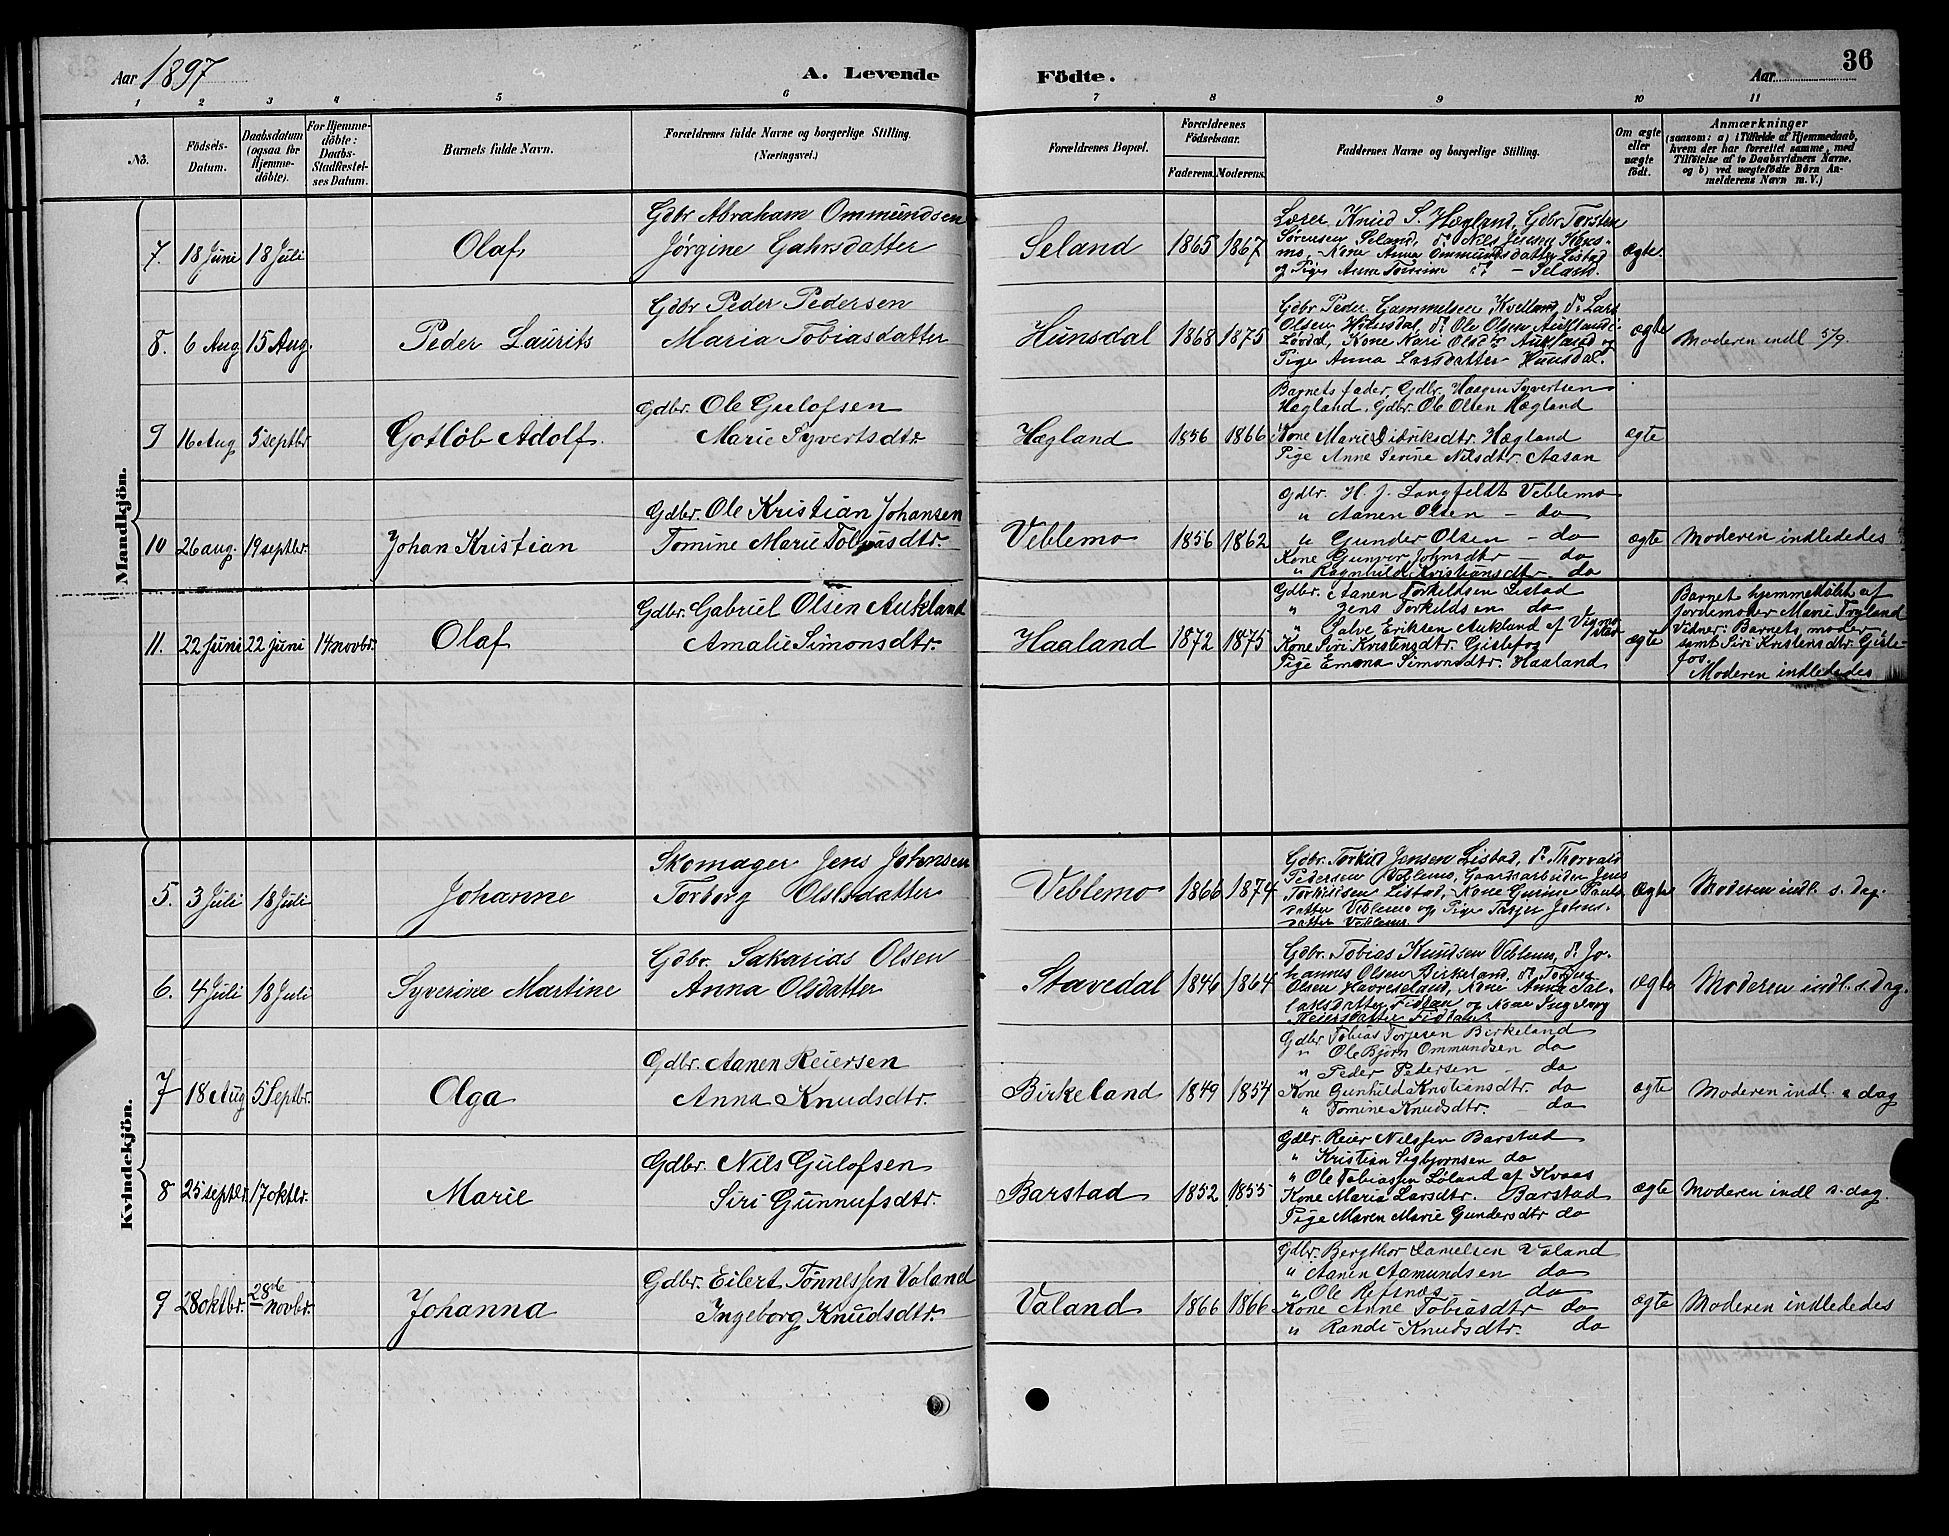 Aar 1897
A. Levende Födte.
Aar
36
1 2 3 4 5 6 7 8 9 10 11
No.
Födsels-Datum.
Daabsdatum (ogsaa for Hjemmedöbte).
For Hjemmedöbte: Daabs-Stadfæstelses Datum.
Barnets fulde Navn.
Forældrenes fulde Navne og borgerlige Stilling. (Næringsvei.)
Forældrenes Bopæl.
Forældrenes Födselsaar.
Faderens. Moderens.
Faddernes Navne og borgerlige Stilling.
Om ægte eller uægte födt.
Anmærkninger
(saasom: a) i Tilfælde af Hjemmedaab,
hvem der har forrettet samme, med
Tilföielse af to Daabsvidners Navne,
og b) ved uægtefödte Börn An-
melderens Navn m. V.)
Mandkjön.
7. 18 Juni 18 Juli Olaf
Gdbr Abraham Ommundsen
Jørgine Gahrsdatter
Seland 1865 1867
Lærer Knud S. Hægland, Gdbr Torsten
Sørensen Seland, do Nils Jensen
Kone Anna Ommundsdatter Listad
og Pige Anne Tomine do - Seland.
ægte.
8. 6 Aug 15 Aug. Peder Laurits
Gdbr Peder Pedersen
Maria Tobiasdatter
Hunsdal 1868 1875
Gdbr Peder Gammelsen Kvelland, do Lars
Olsen do Ole Olsen Aukland i
Løvdal, Kone Kari Olsdtr Aukland og
Pige Anna Larsdatter Hunsdal.
ægte
Moderen indl 5/9.
9 16 Aug 5 septbr Gotlob Adolf.
Gdbr. Ole Gulofsen
Marie Syvertsdtr
Hægland 1856 1866
Barnets fader, Gdbr. Haagen Syvertsen
Hægland, Gdbr. Ole Olsen Hægland
Kone Marie Didriksdtr. Hægland
Pige Anne Serine Nilsdtr. Aasan
ægte
10 26 aug. 19 septbr. Johan Kristian
Gdbr. Ole Kristian Johansen
Tomine Marie Tobiasdtr.
Veblemo 1856 1862
Gdbr. H. J. Langfeldt Veblemo
" Aanen Olsen - do
" Gunder Olsen - do
Kone Gunvor Johnsdtr - do
" Ragnhild Kristiansdtr. do
ægte
Moderen indlededes
11. 22 Juni 22 Juni 14 novbr. Olaf
Gdbr. Gabriel Olsen Aukland
Amalie Simonsdtr.
Haaland 1872 1875
Gdbr. Aanen Torkildsen Listad
" Jens Torkildsen do
" Salve Eriksen Aukland af Vigmostad
Kone Siri Kristensdtr. Gislefos
Pige Emma Simonsdtr. Haaland
ægte
Barnet hjemmedöbt af
Jordemoder Marie Tryland
Vidner: Barnets moder
samt Siri Kristensdtr. Gisle-
fos.
Moderen indlededes
Kvindekjön.
5. 3 Juli 18 Juli Johanne
Skomager Jens Johnsen
Torborg Olsdatter
Veblemo 1866 1874
Gdbr. Torkild Jensen Listad, do Thorvald
Pedersen Veblemo, Gaardarbeider Jens
Torkildsen Listad, Kone Gurine Pauls-
datter Veblemo og Pige Tarjer Johns-
datter Veblemo.
ægte
Moderen indl. s. dag.
6. 4 Juli 18 Juli Syverine Martine
Gdbr. Sakarias Olsen
Anna Olsdatter
Stavedal 1846 1864
Gdbr. Tobias Knudsen Veblemo, do Jo-
hannes Olsen Birkeland, do Torjus
Olsen Kone Anna
Fidtan og Kone Ingeborg
Reiersdatter
ægte
Moderen indl. s. dag.
7 18 Aug 5 Septbr. Olga
Gdbr. Aanen Reiersen
Anna Knudsdtr.
Birkeland 1849 1854
Gdbr. Tobias Torjesen Birkeland
" Ole Bjørn Ommundsen do
" Peder Pedersen - do
Kone Gunhild Kristiansdtr. do
" Tomine Knudsdtr. - do
ægte
Moderen indl. s dag
8 25 septbr. 17 oktbr. Marie
Gdbr. Nils Gulofsen
Siri Gunnufsdtr.
Barstad 1852 1855
Gdbr. Reier Nilssen Barstad
" Kristian Sigbjørnsen do
" Ole Tobiassen Løland af Kvaas
Kone Maria Larsdtr. Barstad
Pige Maren Marie Gundersdtr do
ægte
Moderen indl s. dag.
9 28 oktbr. 28de novbr. Johanna
Gdbr. Eilert Tønnessen Valand
Ingeborg Knudsdtr.
Valand 1866 1866
Gdbr. Bergthor Danielsen Valand
" Aanen Aamundsen do
" Ole Refsnæs do
Kone Anne Tobiasdtr do
" Randi Knudsdtr. do
ægte
Moderen indlededes